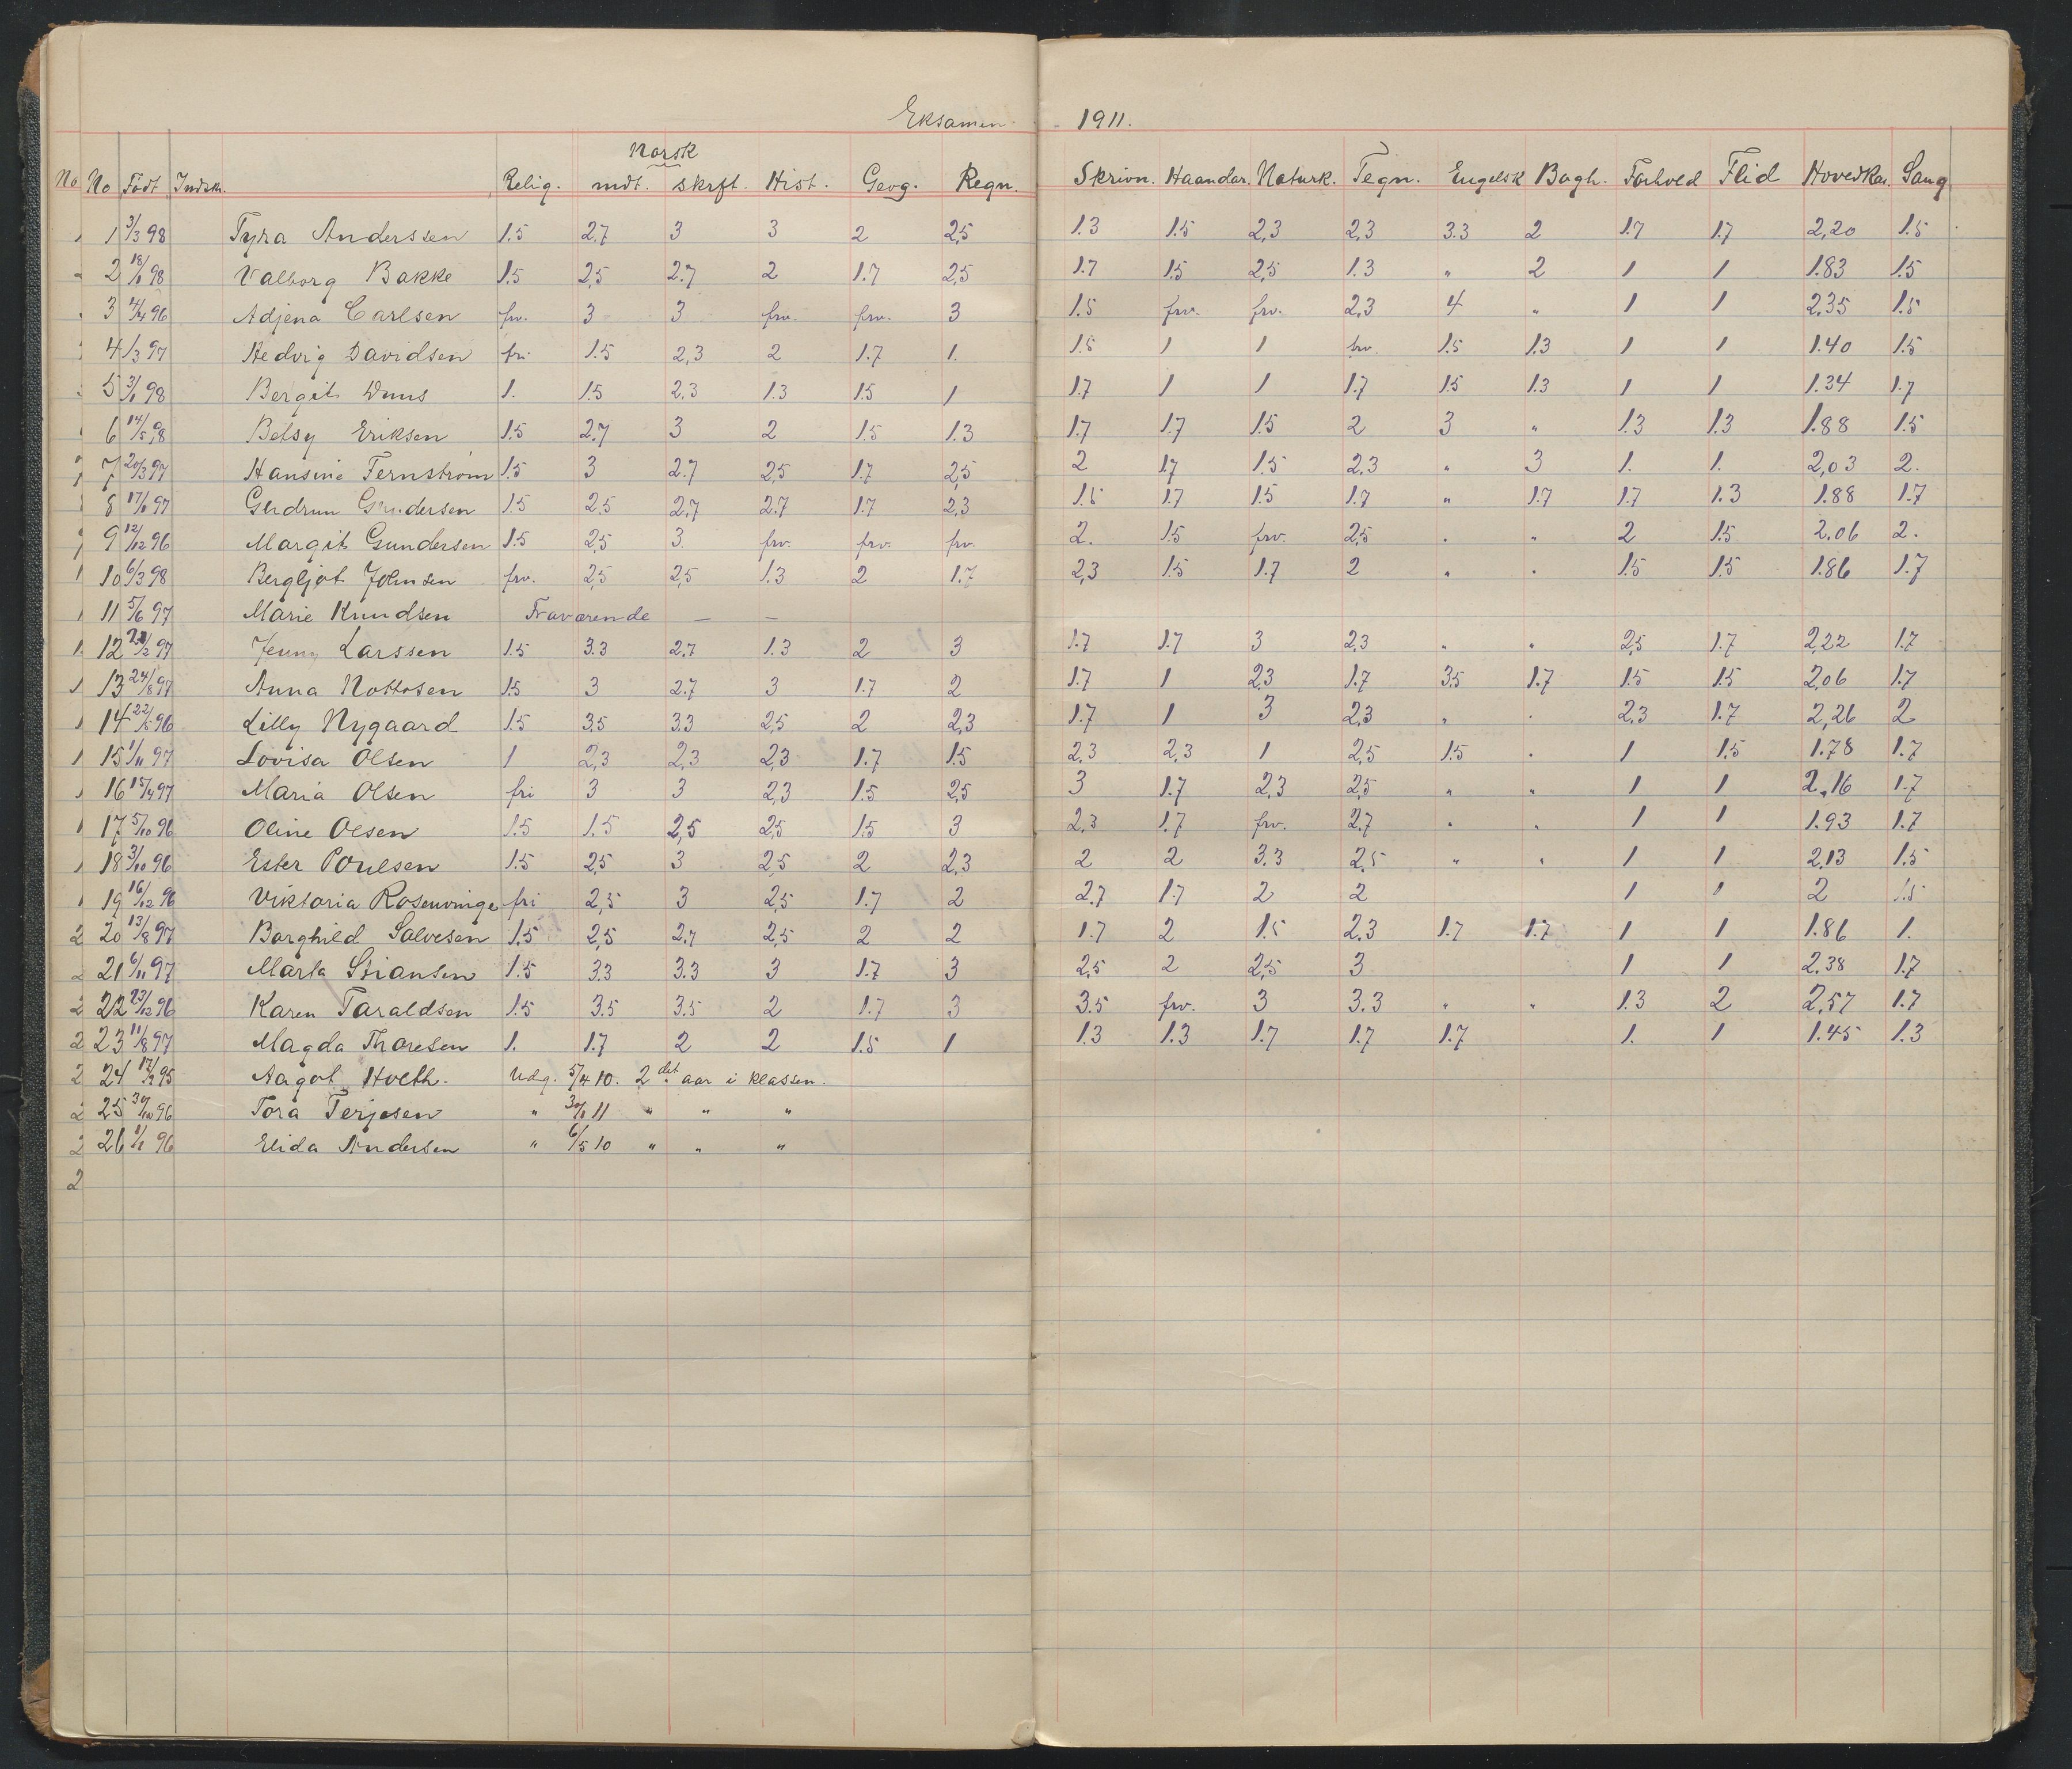 Eksamen 1911.
Norsk
No No Født Indsk. Relig. mdt. skrft. Hist. Geog. Regn. Skrivn. Haandar. Naturk. Tegn. Engelsk Bogh. Forhold Flid Hovedkar. Sang
1 3/3 98 Tyra Anderssen 1.5 2.7 3 3 2 2,5 1.3 1.5 2,3 2,3 3.3 2 1.7 1.7 2,20 1.5
2 98 Valborg Bakke 1.5 2,5 2.7 2 1.7 2,5 1.7 1.5 2,5 1.3 " 2 1 1 1.83 1.5
3 4/4 96 Adjena Carlsen frv. 3 3 frv. frv. 3 1.5 frv. frv. 2,3 4 " 1 1 2,35 1.5
4 1/3 97 Hedvig Davidsen fri 1.5 2,3 2 1.7 1. 1.5 1 1 frv. 1.5 1.3 1 1 1.40 1.5
5 98 Bergit Duus 1. 1.5 2,3 1.3 1.5 1 1.7 1 1 1.7 1.5 1.3 1 1 1.34 1.7
6 14/5 98 Betsy Eriksen 1.5 2.7 3 2 1.5 1.3 1.7 1.7 1.5 2 3 " 1.3 1.3 1.88 1.5
7 20/3 97 Hansine Fernstrøm 1.5 3 2.7 2,5 1.7 2,5 2 1.7 1.5 2,3 " 3 1. 1. 2,03 2.
8 97 Gudrun Gundersen 1.5 2.5 2,7 2.7 1.7 2,3 1.5 1.7 1.5 1.7 " 1.7 1.7 1.3 1.88 1.7
9 12/12 96 Margit Gundersen 1.5 2,5 3. frv. frv. frv. 2. 1.5 frv. 2,5 " " 2 1.5 2.06 2.
10 6/3 98 Bergljot Johnsen frv. 2,5 2,5 1.3 2 1.7 2,3 1.5 1.7 2 " " 1.5 1.5 1.86 1.7
11 5/6 97 Marie Knudsen Fraværende — —
12 97 Jenny Larssen 1.5 3.3 2.7 1.3 2 3 1.7 1.7 3 2,3 " " 2,5 1.7 2,22 1.7
13 24/8 97 Anna Nottosen 1.5 3 2.7 3 1.7 2 1.7 1 2,3 1.7 3.5 1.7 1.5 1.5 2,06 1.7
14 22/5 96 Lilly Nygaard 1.5 3.5 3.3 2,5 2 2,3 1.7 1 3 2,3 " " 2.3 1.7 2,26 2
15 1/11 97 Lovisa Olsen 1 2,3 2,3 2,3 1.7 1.5 2,3 2,3 1 2,5 1.5 " 1 1,5 1.78 1.7
16 15/4 97 Maria Olsen fri 3 3 2,3 1.5 2,5 3 1.7 2.3 2,5 " " 1 1 2,16 1.7
17 5/10 96 Oline Olsen 1.5 1.5 2,5 2,5 1.5 3 2,3 1.7 frv. 2.7 " " 1 1 1.93 1.7
18 3/10 96 Ester Poulsen 1.5 2,5 3 2,5 2 2,3 2 2 3.3 2,5 " " 1 1 2,13 1.5
19 16/12 96 Viktoria Rosenvinge fri 2,5 3 2,5 1.7 2 2.7 1.7 2 2 1 1 2 1.5
20 13/8 97 Borghild Salvesen 1.5 2,5 2.7 2,5 2 2 1.7 2 1.5 2.3 1.7 1.7 1 1 1.86 1.
21 6/11 97 Marta Stiansen 1.5 3.3 3.3 3 1.7 3 2,5 2 2,5 3 1 1 2,38 1.7
22 23/12 96 Karen Taraldsen 1.5 3.5 3.5 2 1.7 3 3.5 frv. 3 3.3 " " 1.3 2 2,57 1.7
23 11/8 97 Magda Thoresen 1. 1.7 2 2 1.5 1 1.3 1.3 1.7 1.7 1.7 1. 1 1.45 1.3
24 95 Aagot Holth. Udg. 5/4 10. 2det aar i klassen.
25 30/10 96 Tora Terjesen " 11 " " "
26 96 Elida Andersen " 6/5 10 " " "
2